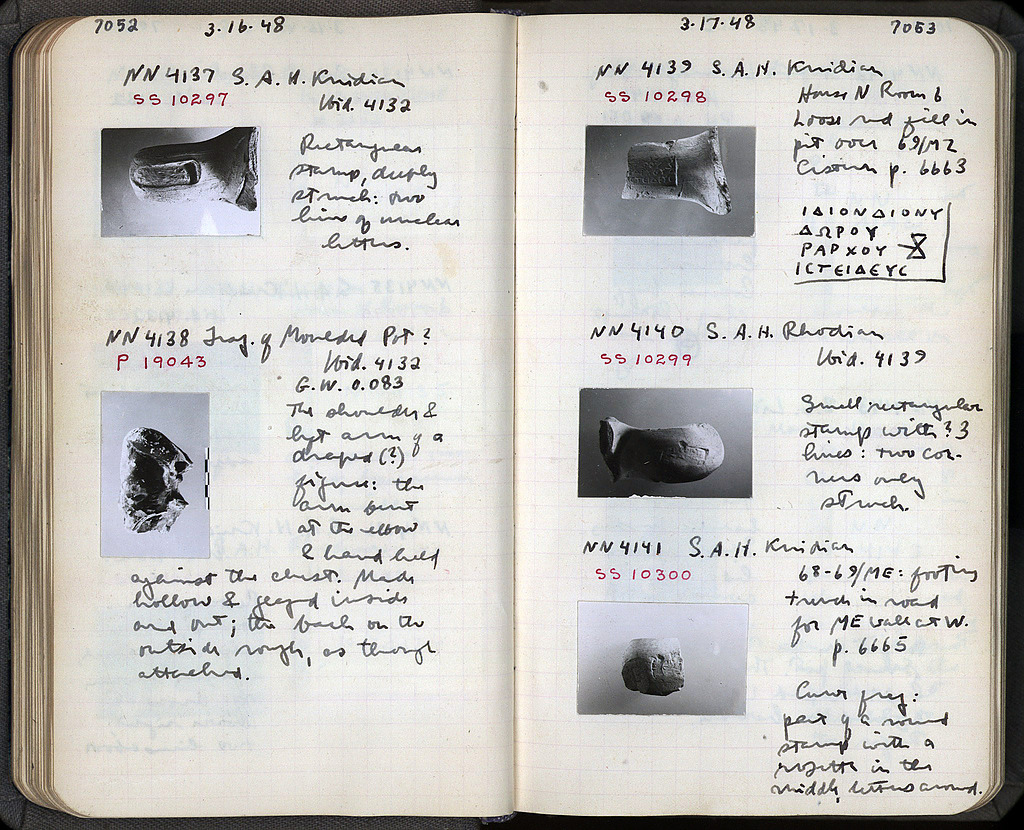 7052 3·16·48
NN 4137 S.A.H. Knidian
SS 10297 Ibid. 4132
Rectangular
stamp, deeply
struck: two
lines of unclear
letters.
NN 4138 Frag. of Moulded Pot?
P 19043 Ibid. 4132
G.W. 0.083
The shoulder &
left arm of a
draped (?)
figure: the
arm bent
at the elbow
& hand held
against the chest. Made
hollow & glazed inside
and out; the back on the
outside rough, as though
attached.
3·17·48 7053
NN 4139 S.A.H. Knidian
SS 10298 House N Room 6
Loose red fill in
pit over 69/ΜΖ
Cistern p. 6663
ΙΔΙΟΝΔΙΟΝΥ
ΔΩΡΟΥ
ΡΑΡΧΟΥ
ΙΣΤΕΙΔΕΥϹ
NN 4140 S.A.H. Rhodian
SS 10299 Ibid. 4139
Small rectangular
stamp with ? 3
lines: two cor-
ners only
struck.
NN 4141 S.A.H. Knidian
SS 10300 68-69/ΜΕ: footing
trench in road
for ME wall at W.
p. 6665
Curve frag:
part of a round
stamp with a
rosette in the
middle, letters around.